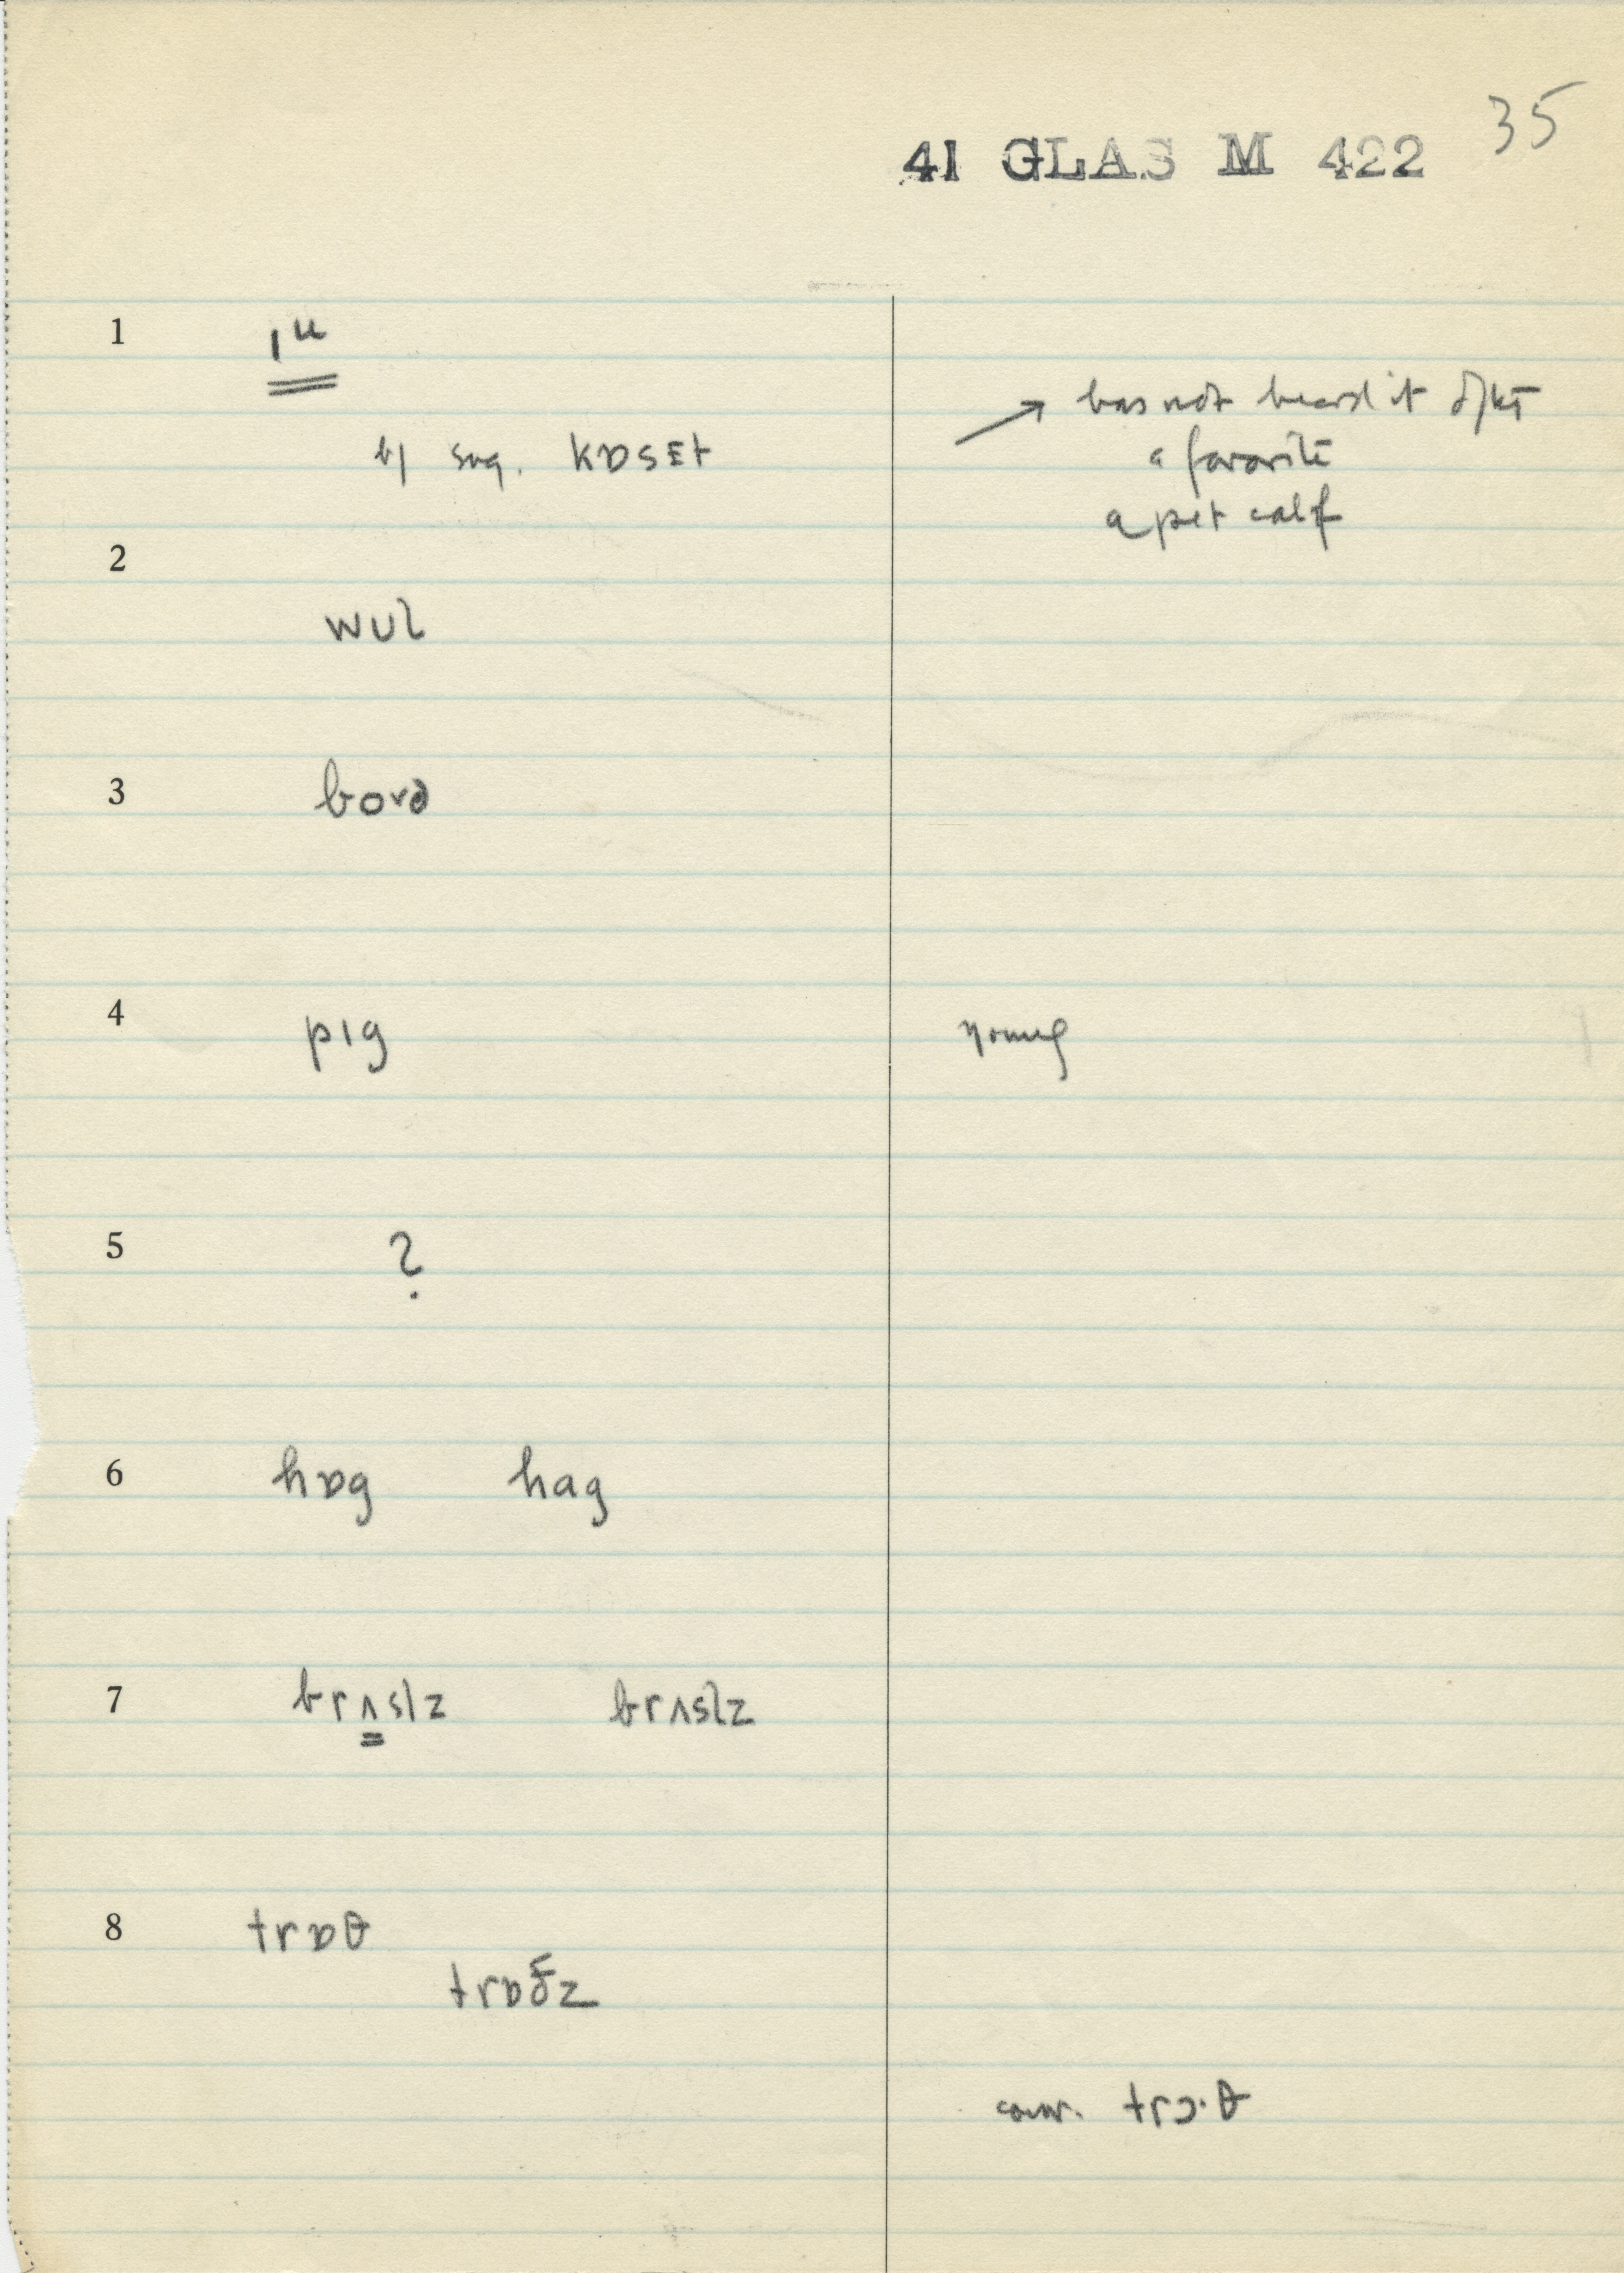 35
41 GLAS M 422
1 ɪu
→ has not heard it
sug. kɒsɛt
a favorite
a pet calf
2
wʊl
3 boɚd
4 pɪg young
5 ?
6 hɒg hag
7 brʌslz brʌslz
8 trɒθ
trɒðz
conv. trɔ·θ